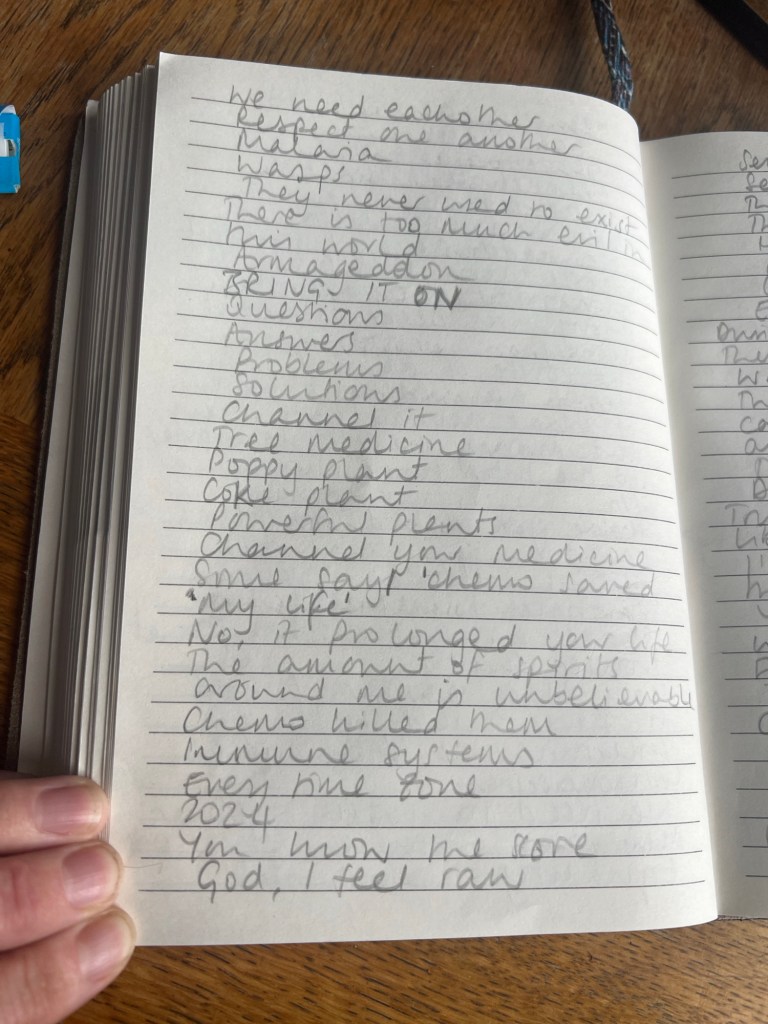 We need eachother
Respect one another
Malaria
Wasps
They never used to exist
There is too much evil in
this world
Armageddon
BRING IT ON
Questions
Answers
Problems
Solutions
Channel it
Tree medicine
Poppy plant
Coke plant
Powerful plants
Channel your medicine
Some say 'chemo saved
'my life'
No, it prolonged your life
The amount of spirits
around me is unbelievable
Chemo killed them
Immune systems
Every time zone
2024
You know the score
God, I feel raw